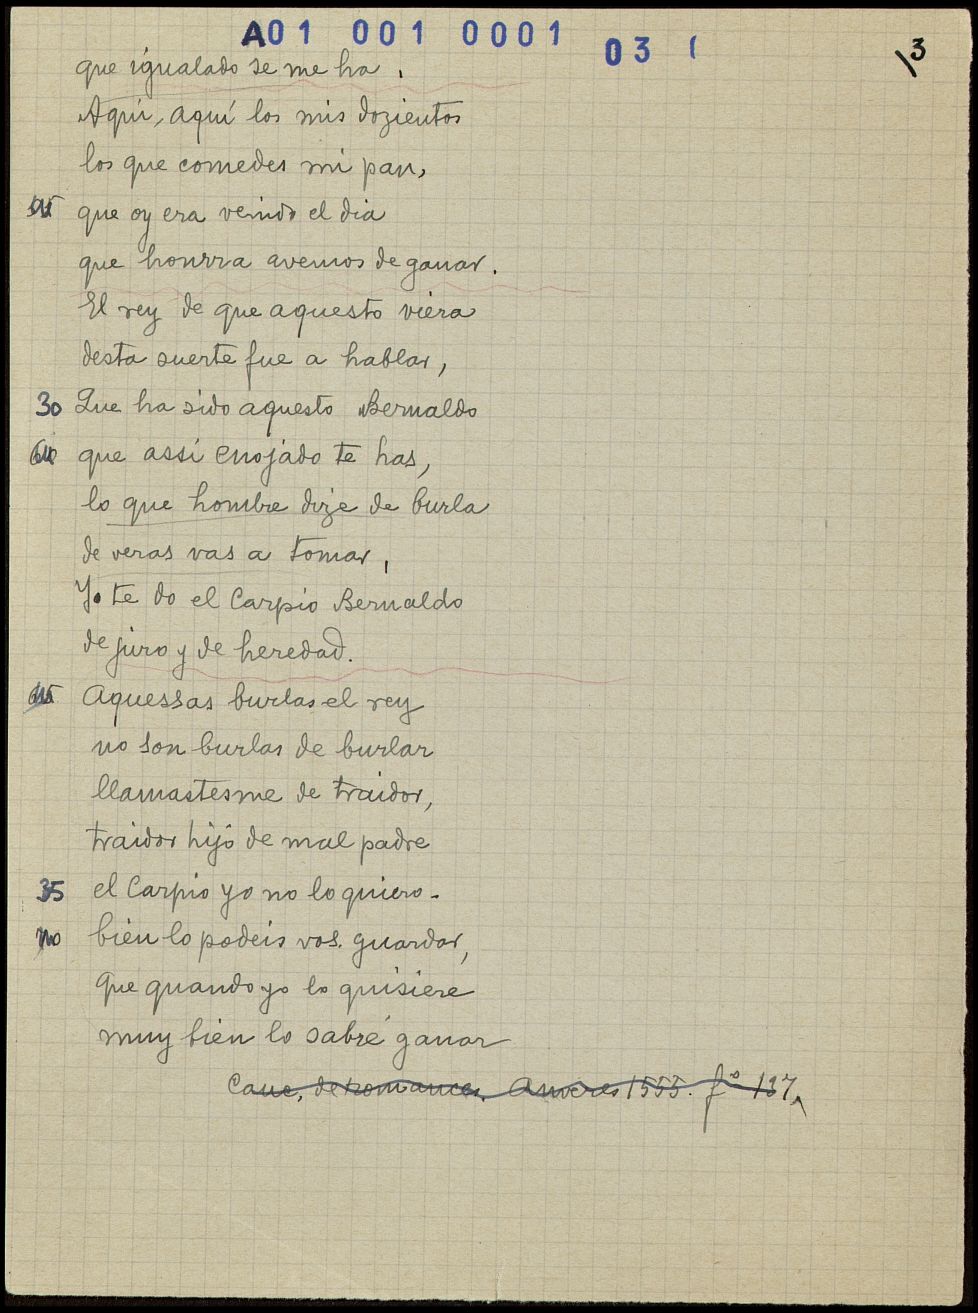 A01 001 0001 03 (
3
que igualado se me ha.
Aquí, aquí los mis dozientos
los que comedes mi pan,
que oy era venido el dia
que honrra avemos de ganar.
El rey de que aquesto viera
desta suerte fue a hablar,
30 Que ha sido aquesto Bernaldo
60 que assi enojado te has,
lo que hombre dize de burla
de veras vas a tomar,
Yo te do el Carpio Bernaldo
de juro y de heredad.
65 Aquessas burlas el rey
no son burlas de burlar
llamastesme de traidor,
traidor hijo de mal padre
35 el Carpio yo no lo quiero.
70 bien lo podeis vos guardar,
que quando yo lo quisiere
muy bien lo sabré ganar
Canc. de romances. Anveres 1555. fº 137